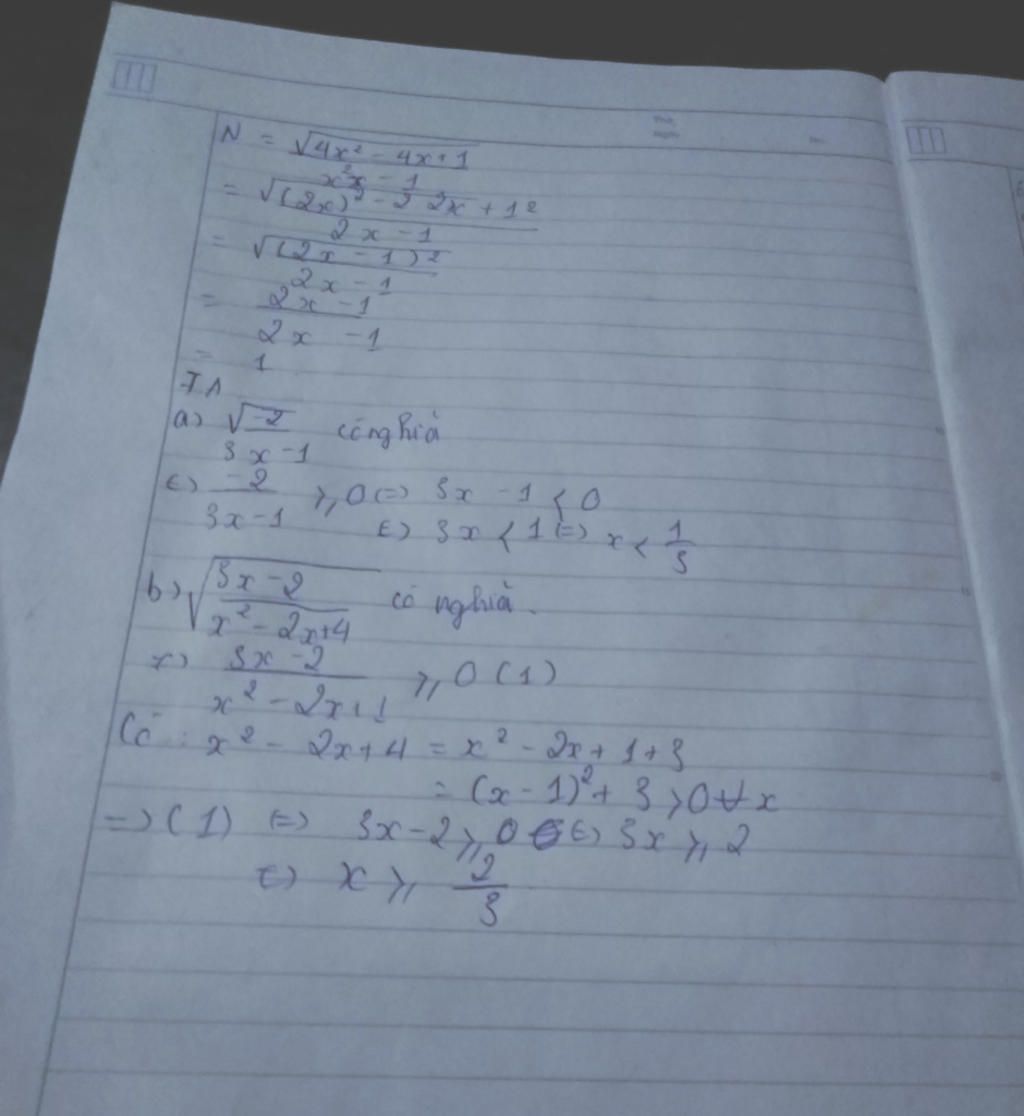 N = √4x² - 4x + 1
x²x - 1
= √(2x)² - 2 2x + 1²
2x - 1
= √(2x - 1)²
2x - 1
= 2x - 1
2x - 1
= 1
a) √-2 cónghià
3x - 1
-2 ⩾ 0 <=> 3x - 1 < 0
3x - 1
<=> 3x < 1 <=> x < 1/3
b) √(3x - 2)/(x² - 2x + 4) có nghià.
3x - 2 ⩾ 0 (1)
x² - 2x + 1
Có : x² - 2x + 4 = x² - 2x + 1 + 3
= (x - 1)² + 3 > 0 ∀ x
=> (1) <=> 3x - 2 ⩾ 0 <=> 3x ⩾ 2
<=> x ⩾ 2/3